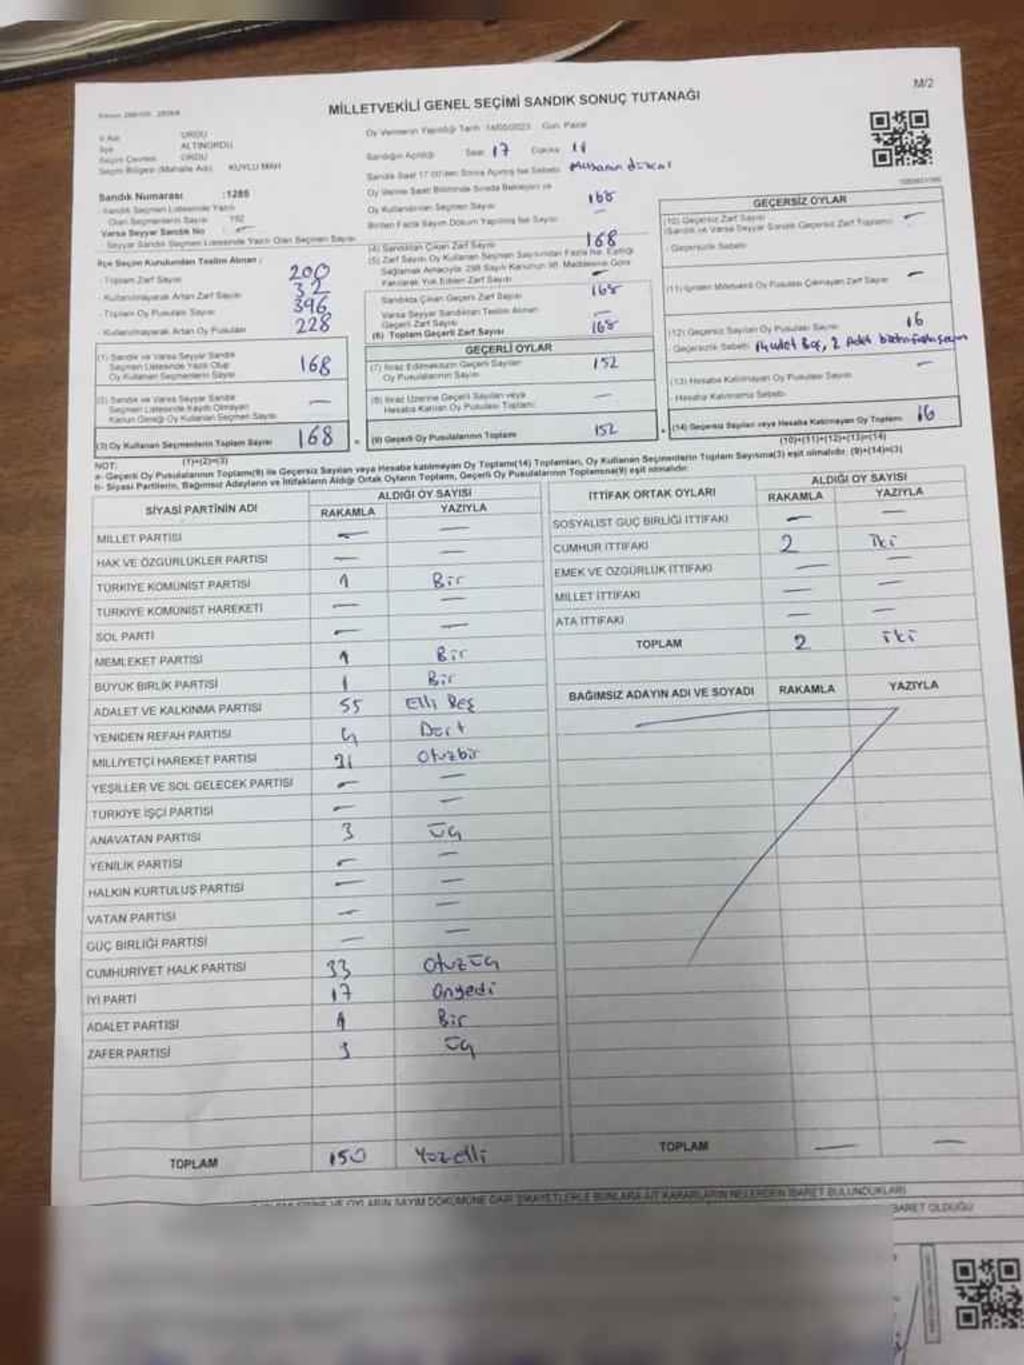 M/2
MİLLETVEKİLİ GENEL SEÇİMİ SANDIK SONUÇ TUTANAĞI
İl Adı ORDU
İlçe ALTINORDU
Seçim Çevresi ORDU
Seçim Bölgesi (Mahalle Adı) KUYLU MAH
Oy Vermenin Yapıldığı Tarih 14/05/2023 Gün Pazar
Sandığın Açıldığı Saat 17 Dakika 11
Sandık Numarası :1285
- Sandık Seçmen Listesinde Yazılı
Olan Seçmenlerin Sayısı 192
Varsa Seyyar Sandık No —
- Seyyar Sandık Seçmen Listesinde Yazılı Olan Seçmen Sayısı
Oy Kullandırılan Seçmen Sayısı 168
Birden Fazla Sayım Döküm Yapılmış İse Sayısı —
İlçe Seçim Kurulundan Teslim Alınan :
- Toplam Zarf Sayısı 200
- Kullanılmayarak Artan Zarf Sayısı 32
- Toplam Oy Pusulası Sayısı 396
- Kullanılmayarak Artan Oy Pusulası 228
(1) Sandık ve Varsa Seyyar Sandık
Seçmen Listesinde Yazılı Olup
Oy Kullanan Seçmenlerin Sayısı 168
(2) Sandık ve Varsa Seyyar Sandık
Seçmen Listesinde Kayıtlı Olmayan
Kanun Gereği Oy Kullanan Seçmen Sayısı —
(3) Oy Kullanan Seçmenlerin Toplam Sayısı 168
(1)+(2)=(3)
(4) Sandıktan Çıkan Zarf Sayısı 168
(5) Zarf Sayısı Oy Kullanan Seçmen Sayısından Fazla İse, Eşitliği
Sağlamak Amacıyla 298 Sayılı Kanunun 98. Maddesine Göre
Yakılarak Yok Edilen Zarf Sayısı —
Sandıkta Çıkan Geçerli Zarf Sayısı 168
Varsa Seyyar Sandıktan Teslim Alınan
Geçerli Zarf Sayısı —
(6) Toplam Geçerli Zarf Sayısı 168
GEÇERLİ OYLAR
(7) İtiraz Edilmeksizin Geçerli Sayılan
Oy Pusulalarının Sayısı 152
(8) İtiraz Üzerine Geçerli Sayılan veya
Hesaba Katılan Oy Pusulası Toplamı —
(9) Geçerli Oy Pusulalarının Toplamı 152
GEÇERSİZ OYLAR
(10) Geçersiz Zarf Sayısı
(Sandık ve Varsa Seyyar Sandık Geçersiz Zarf Toplamı) —
- Geçersizlik Sebebi
(11) İçinden Milletvekili Oy Pusulası Çıkmayan Zarf Sayısı —
(12) Geçersiz Sayılan Oy Pusulası Sayısı 16
Geçersizlik Sebebi Boş, 2 Adet
(13) Hesaba Katılmayan Oy Pusulası Sayısı —
- Hesaba Katılmama Sebebi
(14) Geçersiz Sayılan veya Hesaba Katılmayan Oy Toplamı 16
(10)+(11)+(12)+(13)=(14)
NOT:
a- Geçerli Oy Pusulalarının Toplamı(9) ile Geçersiz Sayılan veya Hesaba katılmayan Oy Toplamı(14) Toplamları, Oy Kullanan Seçmenlerin Toplam Sayısına(3) eşit olmalıdır. (9)+(14)=(3)
b- Siyasi Partilerin, Bağımsız Adayların ve İttifakların Aldığı Ortak Oyların Toplamı, Geçerli Oy Pusulalarının Toplamına(9) eşit olmalıdır.
SİYASİ PARTİNİN ADI ALDIĞI OY SAYISI
RAKAMLA YAZIYLA
MİLLET PARTİSİ — —
HAK VE ÖZGÜRLÜKLER PARTİSİ — —
TÜRKİYE KOMÜNİST PARTİSİ 1 Bir
TÜRKİYE KOMÜNİST HAREKETİ — —
SOL PARTİ — —
MEMLEKET PARTİSİ 1 Bir
BÜYÜK BİRLİK PARTİSİ 1 Bir
ADALET VE KALKINMA PARTİSİ 55 Elli Beş
YENİDEN REFAH PARTİSİ 4 Dört
MİLLİYETÇİ HAREKET PARTİSİ 31 Otuzbir
YEŞİLLER VE SOL GELECEK PARTİSİ — —
TÜRKİYE İŞÇİ PARTİSİ — —
ANAVATAN PARTİSİ 3 Üç
YENİLİK PARTİSİ — —
HALKIN KURTULUŞ PARTİSİ — —
VATAN PARTİSİ — —
GÜÇ BİRLİĞİ PARTİSİ — —
CUMHURİYET HALK PARTİSİ 33 Otuz Üç
İYİ PARTİ 17 Onyedi
ADALET PARTİSİ 1 Bir
ZAFER PARTİSİ 3 Üç
TOPLAM 150 Yüz elli
İTTİFAK ORTAK OYLARI ALDIĞI OY SAYISI
RAKAMLA YAZIYLA
SOSYALİST GÜÇ BİRLİĞİ İTTİFAKI — —
CUMHUR İTTİFAKI 2 İki
EMEK VE ÖZGÜRLÜK İTTİFAKI — —
MİLLET İTTİFAKI — —
ATA İTTİFAKI — —
TOPLAM 2 iki
BAĞIMSIZ ADAYIN ADI VE SOYADI RAKAMLA YAZIYLA
TOPLAM — —